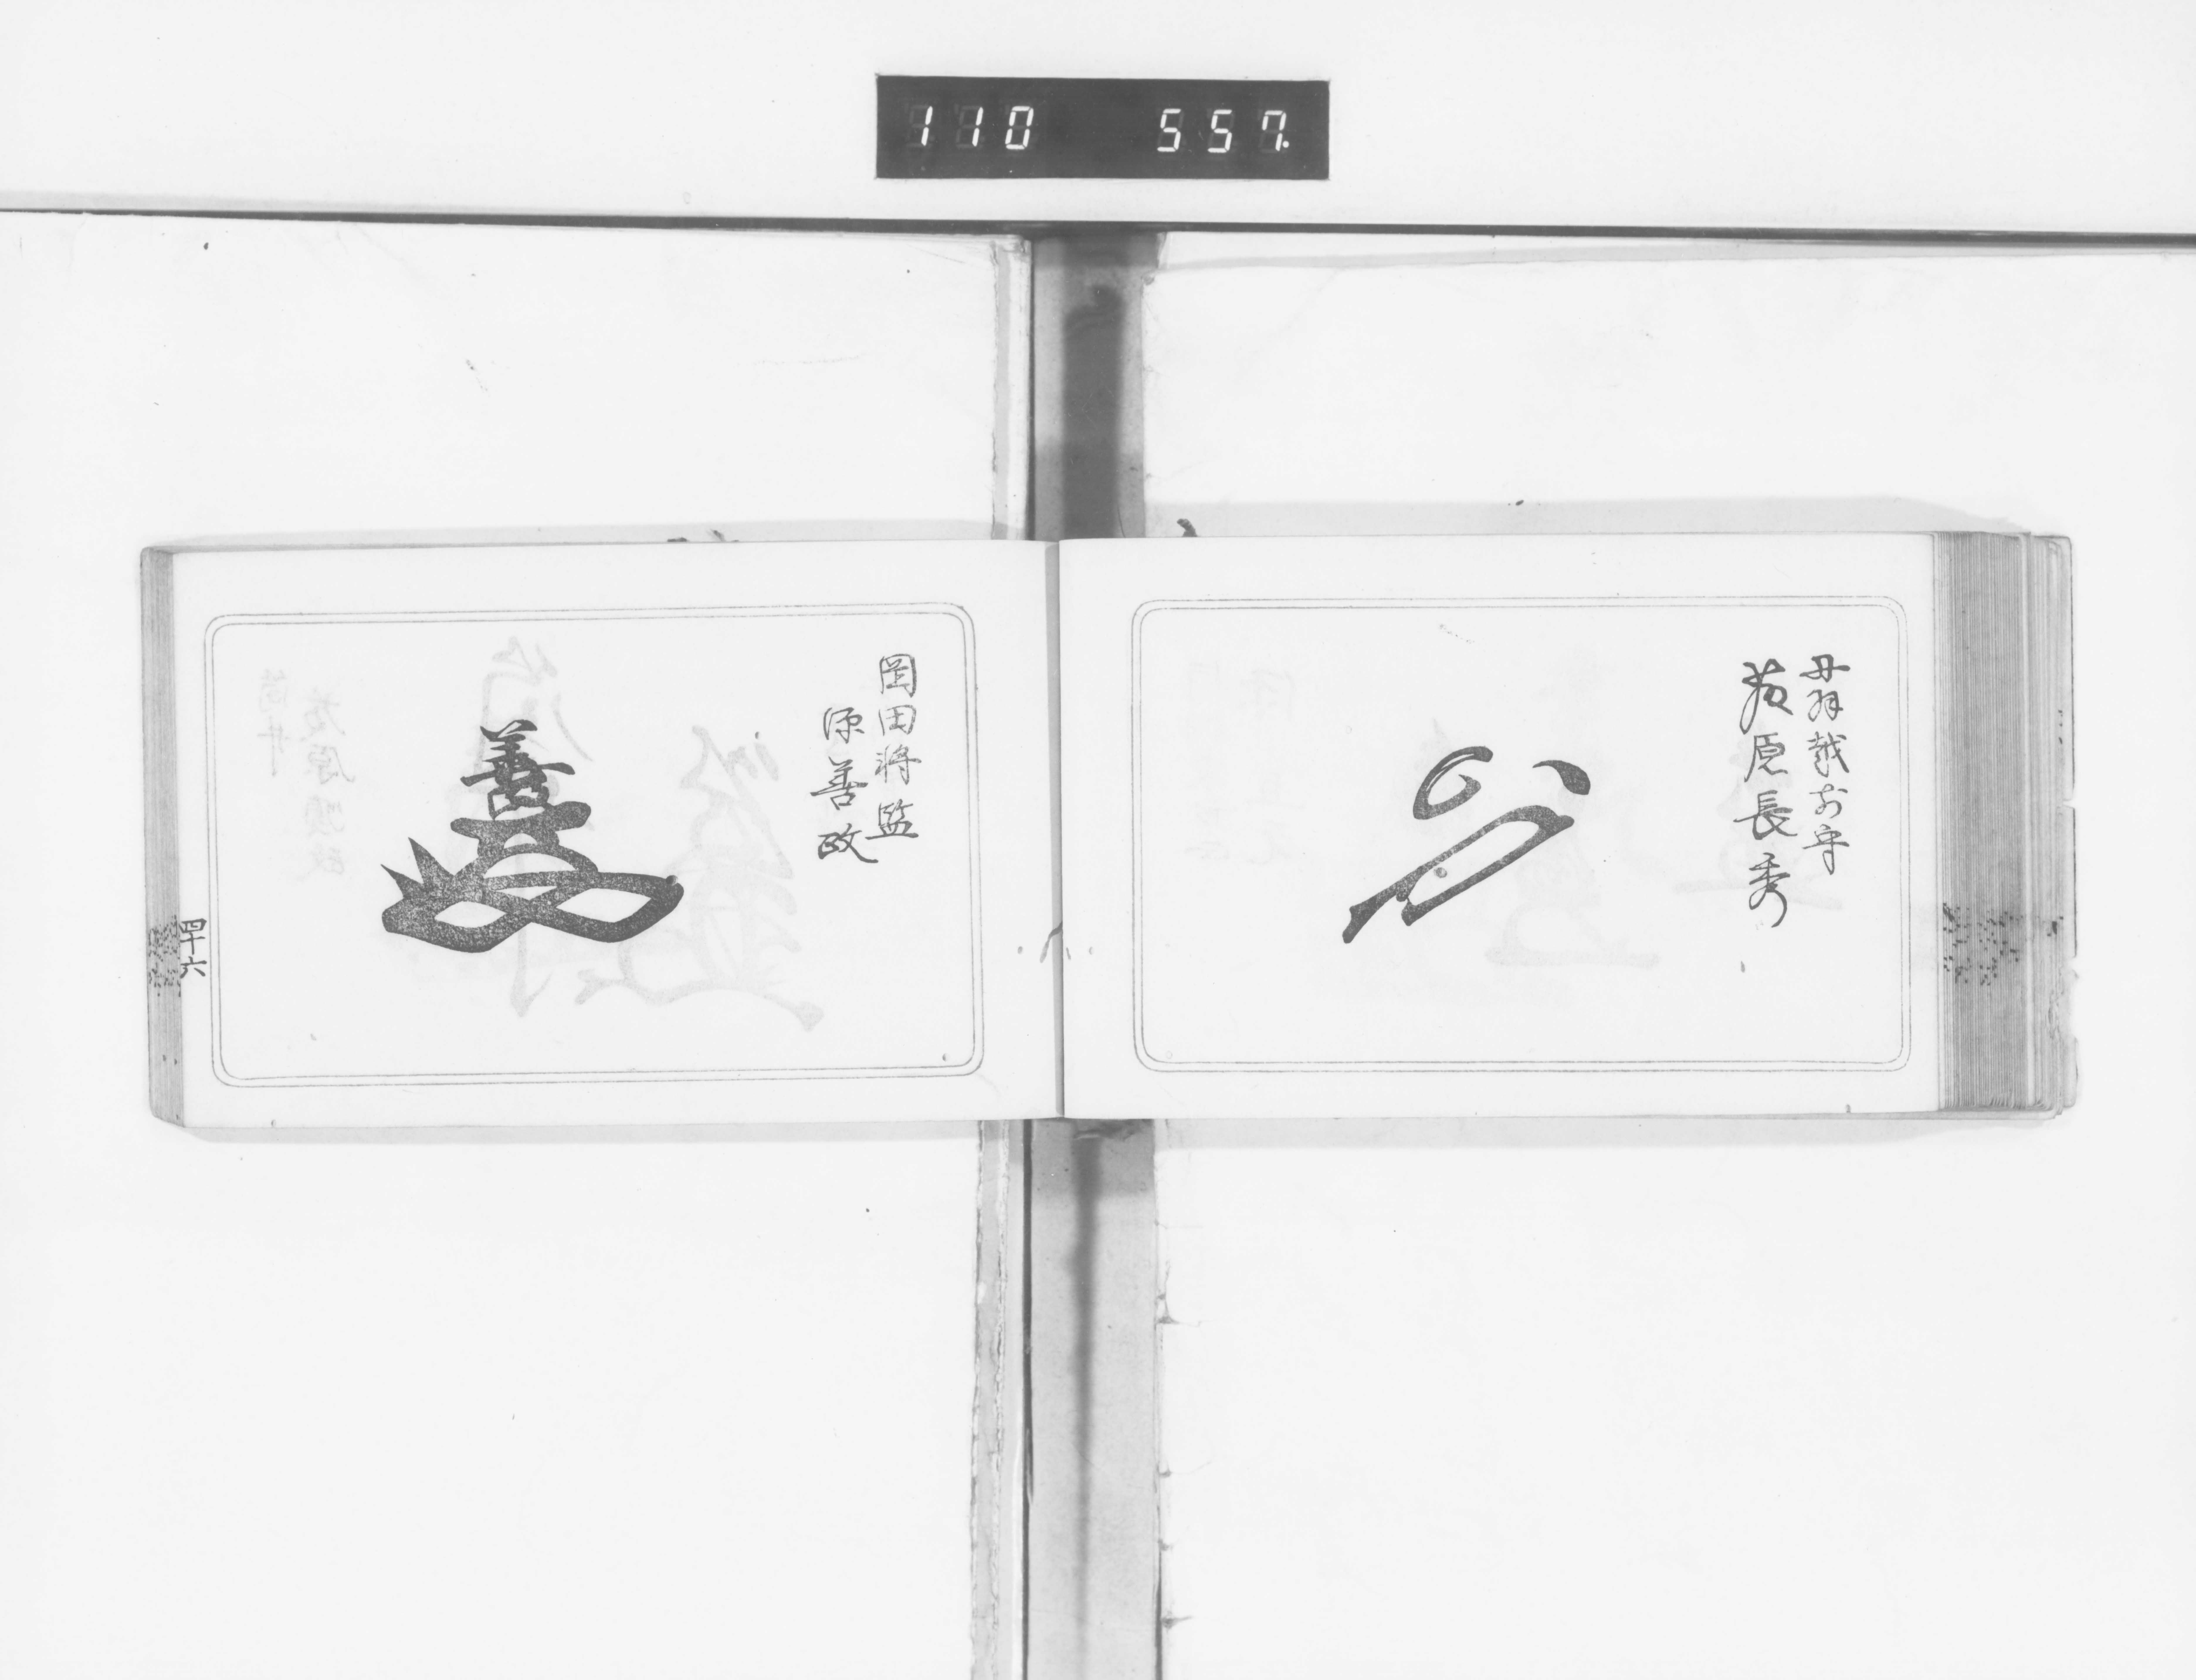 110 557.
丹羽越前守
藤原長秀
岡田将監
源善政
善
四十六